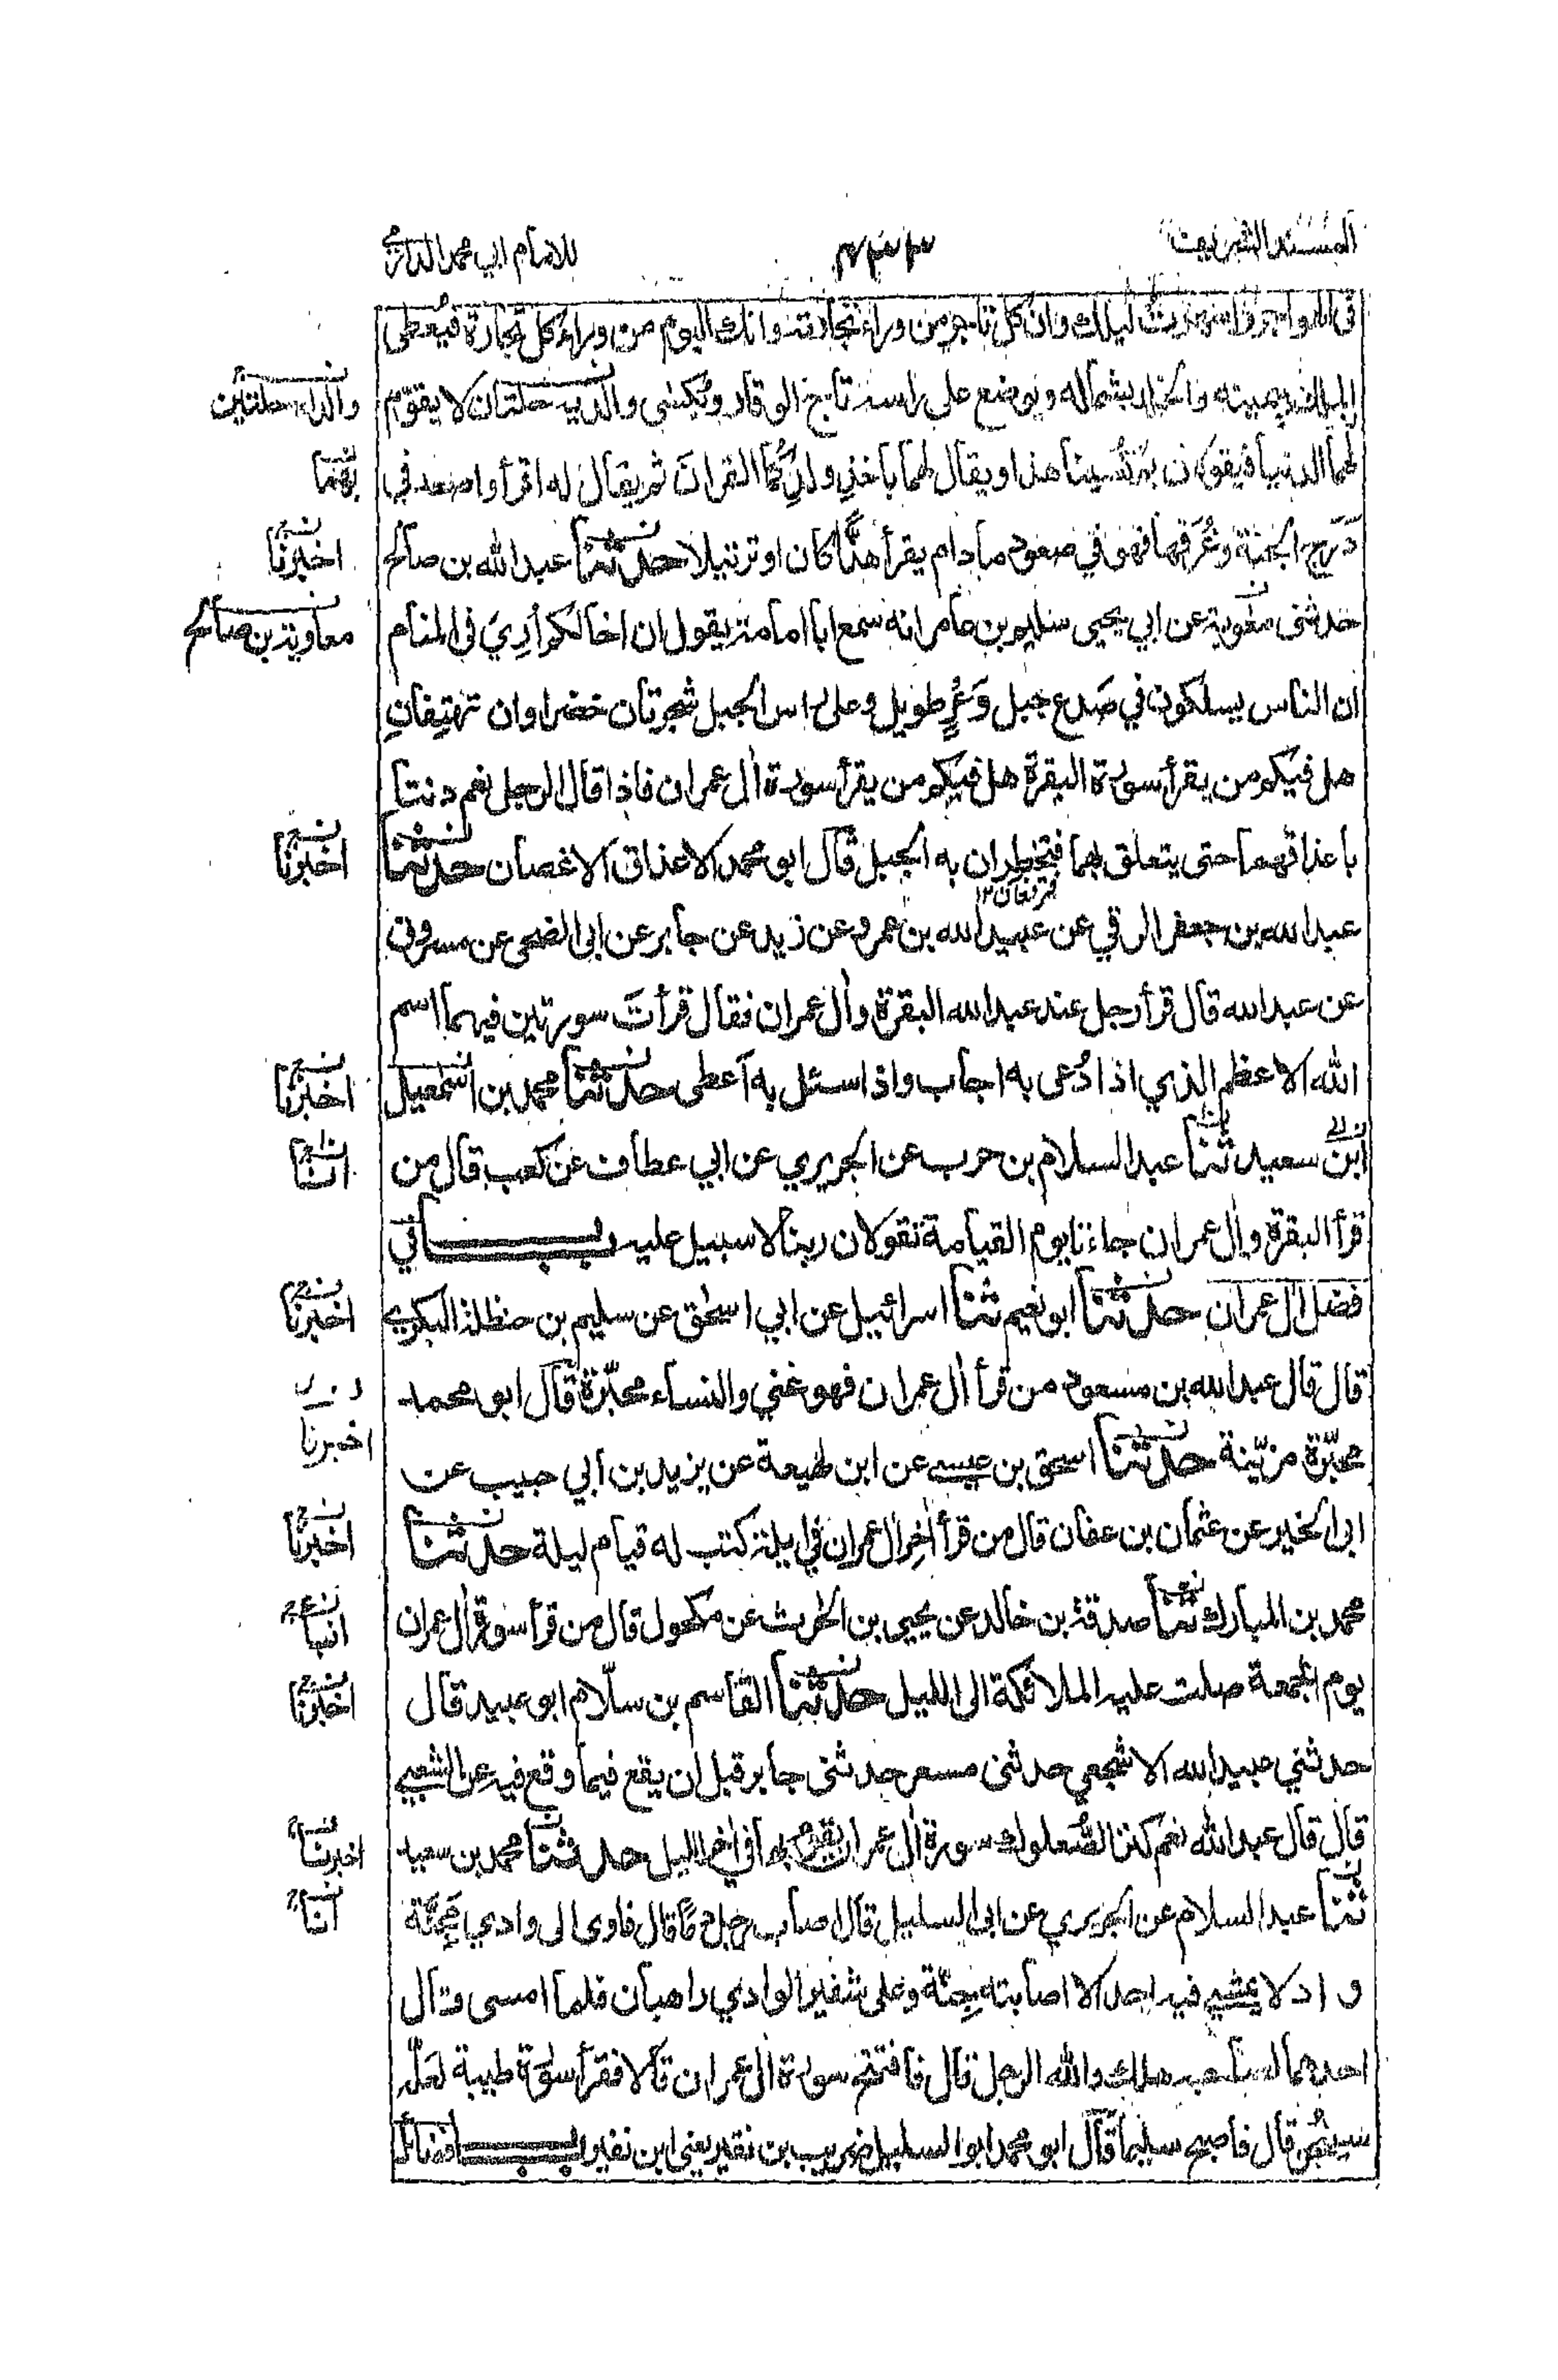 المسند الشريف
٤٣٣
للامام ابي محمد الدارمي
في الهواجر واسهرت ليلك وان كل تاجر من وراء تجارته وانك اليوم من وراء كل تجارة فيُعطى
الملك بيمينه والخلد بشماله ويوضع على راسه تاج الوقار ويُكسى والديه حلتان لا يقوّم
والداه حلتين
لهما الدنيا فيقولان بم كُسينا هذا ويقال لهما باخذ ولدكُما القرانَ ثم يقال له اقرأ واصعد في
بهما
دَرَج الجنة وغُرَفها فهو في صعود ما دام يقرأ هذًّا كان او ترتيلا حدثنا عبد الله بن صالح
اخبرنا
حدثني معٰوية عن ابي يحيى سليم بن عامر انه سمع ابا امامة يقول ان اخا لكم أُرِيَ في المنام
معاوية بن صالح
ان الناس يسلكون في صَدع جبل وَعْرٍ طويل وعلى راس الجبل شجرتان خضراوان تهتِفانِ
هل فيكم من يقرأ سورة البقرة هل فيكم من يقرأ سورة اٰل عمران فاذا قال الرجل نعم دنتا
باعذاقهما حتى يتعلق بهما فتخطِران به الجبل قال ابو محمد الاعذاق الاغصان حدثنا
اخبرنا
عبد الله بن جعفر الرقي عن عبيد الله بن عمرو عن زيد عن جابر عن ابي الضحى عن مسروق
عن عبد الله قال قرأ رجل عند عبد الله البقرة واٰل عمران فقال قرأتَ سورتين فيهما اسم
الله الاعظم الذي اذا دُعى به اجاب واذا سئل به اَعطى حدثنا محمد بن اسمٰعيل
اخبرنا
ابن سعيد ثنا عبد السلام بن حرب عن الجريري عن ابي عطاف عن كعب قال من
انبا
قرأ البقرة واٰل عمران جاءتا يوم القيامة تقولان ربنا لا سبيل عليه باب في
فضل اٰل عمران حدثنا ابو نعيم ثنا اسرائيل عن ابي اسحٰق عن سليم بن حنظلة البكري
اخبرنا
قال قال عبد الله بن مسعود من قرأ اٰل عمران فهو غني والنساء محبّرة قال ابو محمد
محبّرة مزيّنة حدثنا اسحق بن عيسى عن ابن لهيعة عن يزيد بن ابي حبيب عن
اخبرنا
ابي الخير عن عثمان بن عفان قال من قرأ اٰخِر اٰل عمران في ليلة كتب له قيام ليلة حدثنا
اخبرنا
محمد بن المبارك ثنا صدقة بن خالد عن يحيى بن الحٰرث عن مكحول قال من قرأ سورة اٰل عمران
انبا
يوم الجمعة صلت عليه الملائكة الى الليل حدثنا القاسم بن سلّام ابو عبيد قال
اخبرنا
حدثني عبيد الله الاشجعي حدثني مسعر حدثني جابر قبل ان يقع فيما وقع فيه عن الشعبي
قال قال عبد الله نعم كنز الصُّعلوك سورة اٰل عمران يقوم بها في اٰخر الليل حدثنا محمد بن سعيد
اخبرنا
ثنا عبد السلام عن الجريري عن ابي السليل قال اصاب رجل دمًا قال فاوى الى وادي مَجِنَّة
انا
واد لا يمشي فيه احد الا اصابته جِنّة وعلى شفير الوادي راهبان فلما امسى قال
احدهما لصاحبه هلك والله الرجل قال فافتتح سورة اٰل عمران قالا فقرأ سورة طيبة لعله
سينجو قال فاصبح سليما قال ابو محمد ابو السليل ضريب بن نقير يعني ابن نفير باب فضائل